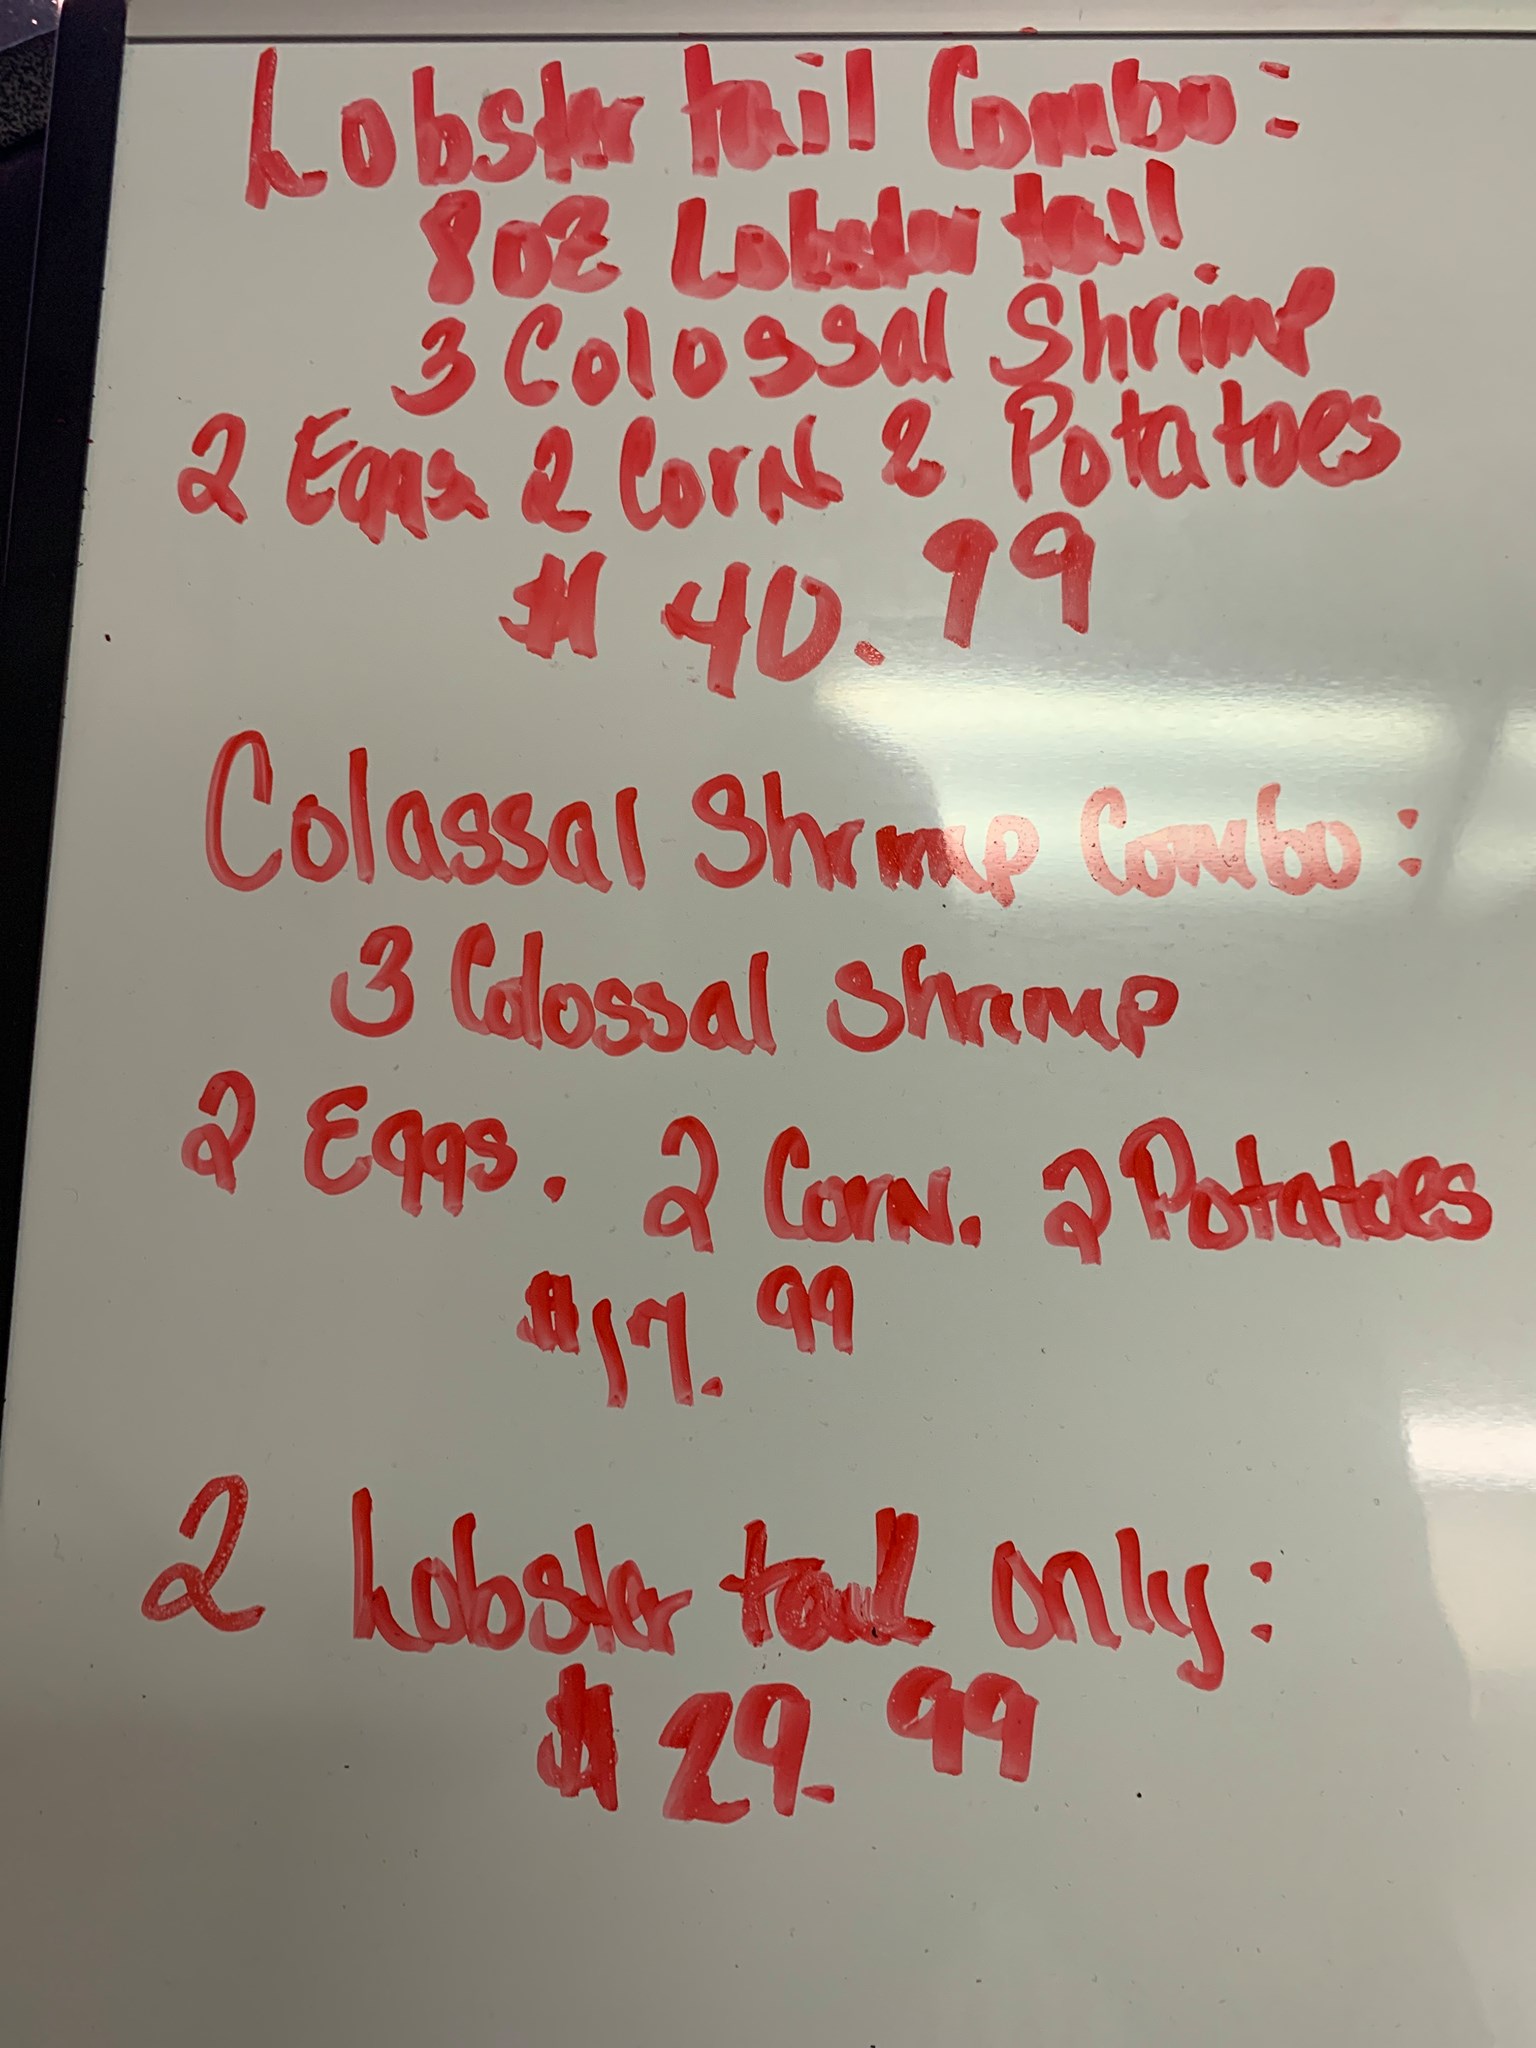 Lobster tail Combo:
8oz Lobster tail
3 Colossal Shrimp
2 Eggs 2 Corn 2 Potatoes
$ 40.99
Colassal Shrimp Combo:
3 Colossal Shrimp
2 Eggs. 2 Corn. 2 Potatoes
$17.99
2 Lobster tail only:
$29.99